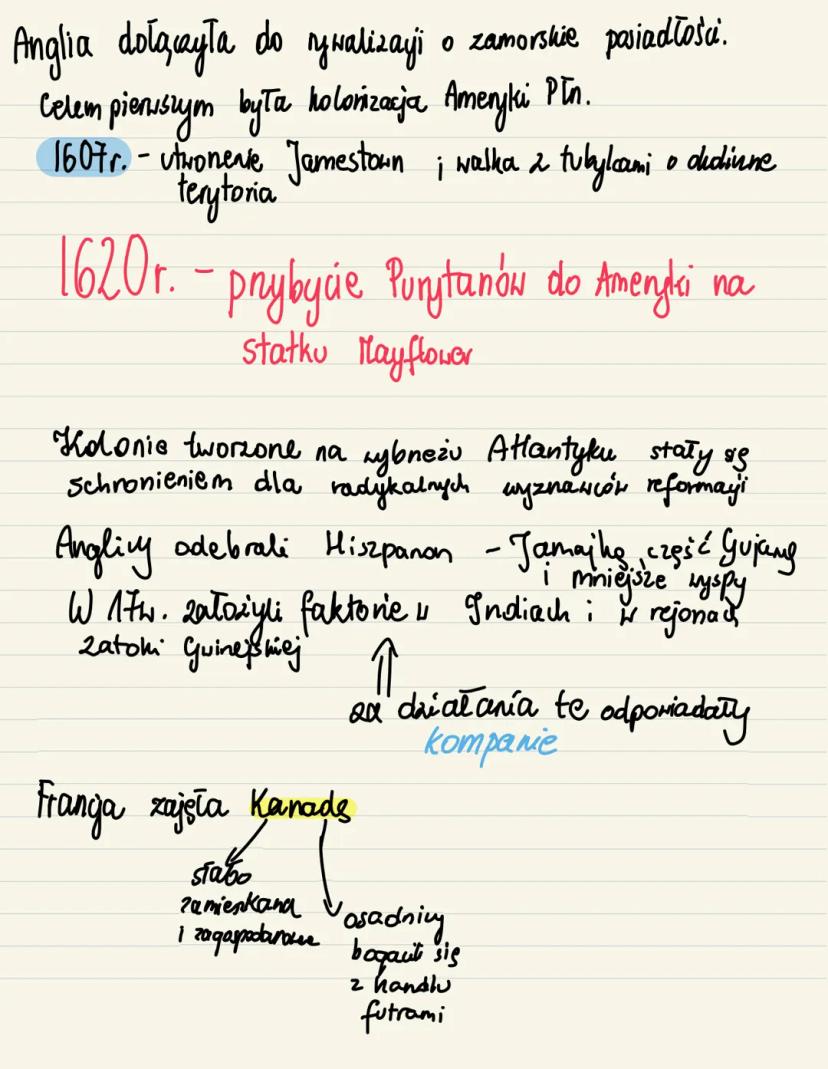 Anglia dołączyła do rywalizacji o zamorskie posiadłości.
Celem pierwszym była kolonizacja Ameryki Płn.
1607r. - utworzenie Jamestown i walka z tubylcami o okoliczne
terytoria
1620r. - przybycie Purytanów do Ameryki na
statku Mayflower
Kolonie tworzone na wybrzeżu Atlantyku stały się
schronieniem dla radykalnych wyznawców reformacji
Anglicy odebrali Hiszpanom - Jamajkę, część Gujany
i mniejsze wyspy
W 17w. założyli faktorie w Indiach i w rejonach
zatoki Gwinejskiej
za działania te odpowiadały
kompanie
Francja zajęła Kanadę
słabo
zamieszkana
i zagospodarowana
osadnicy
bogacili się
z handlu
futrami